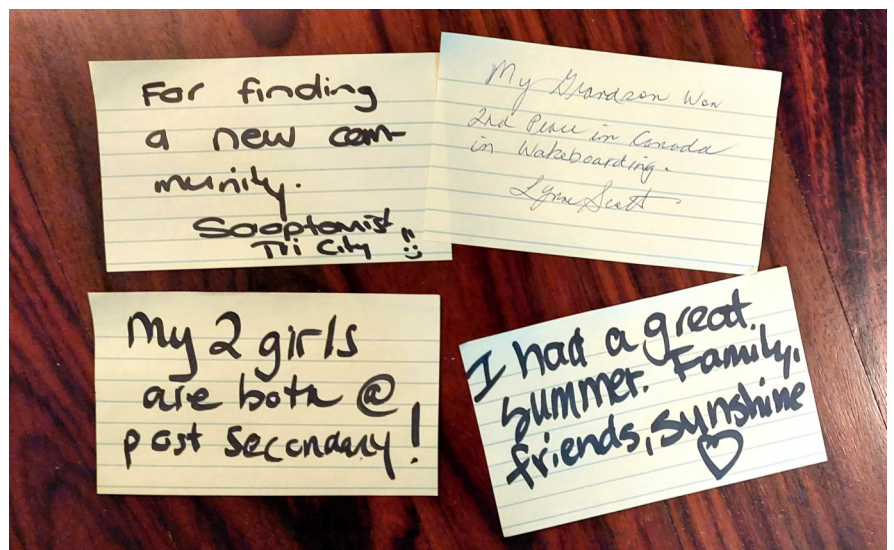 For finding
a new com-
munity.
Sooptomist
Tri City
My Grandson Won
2nd Place in Canada
in Wakeboarding.
Lynne Scott
My 2 girls
are both @
post secondary!
I had a great
summer. Family,
friends, sunshine